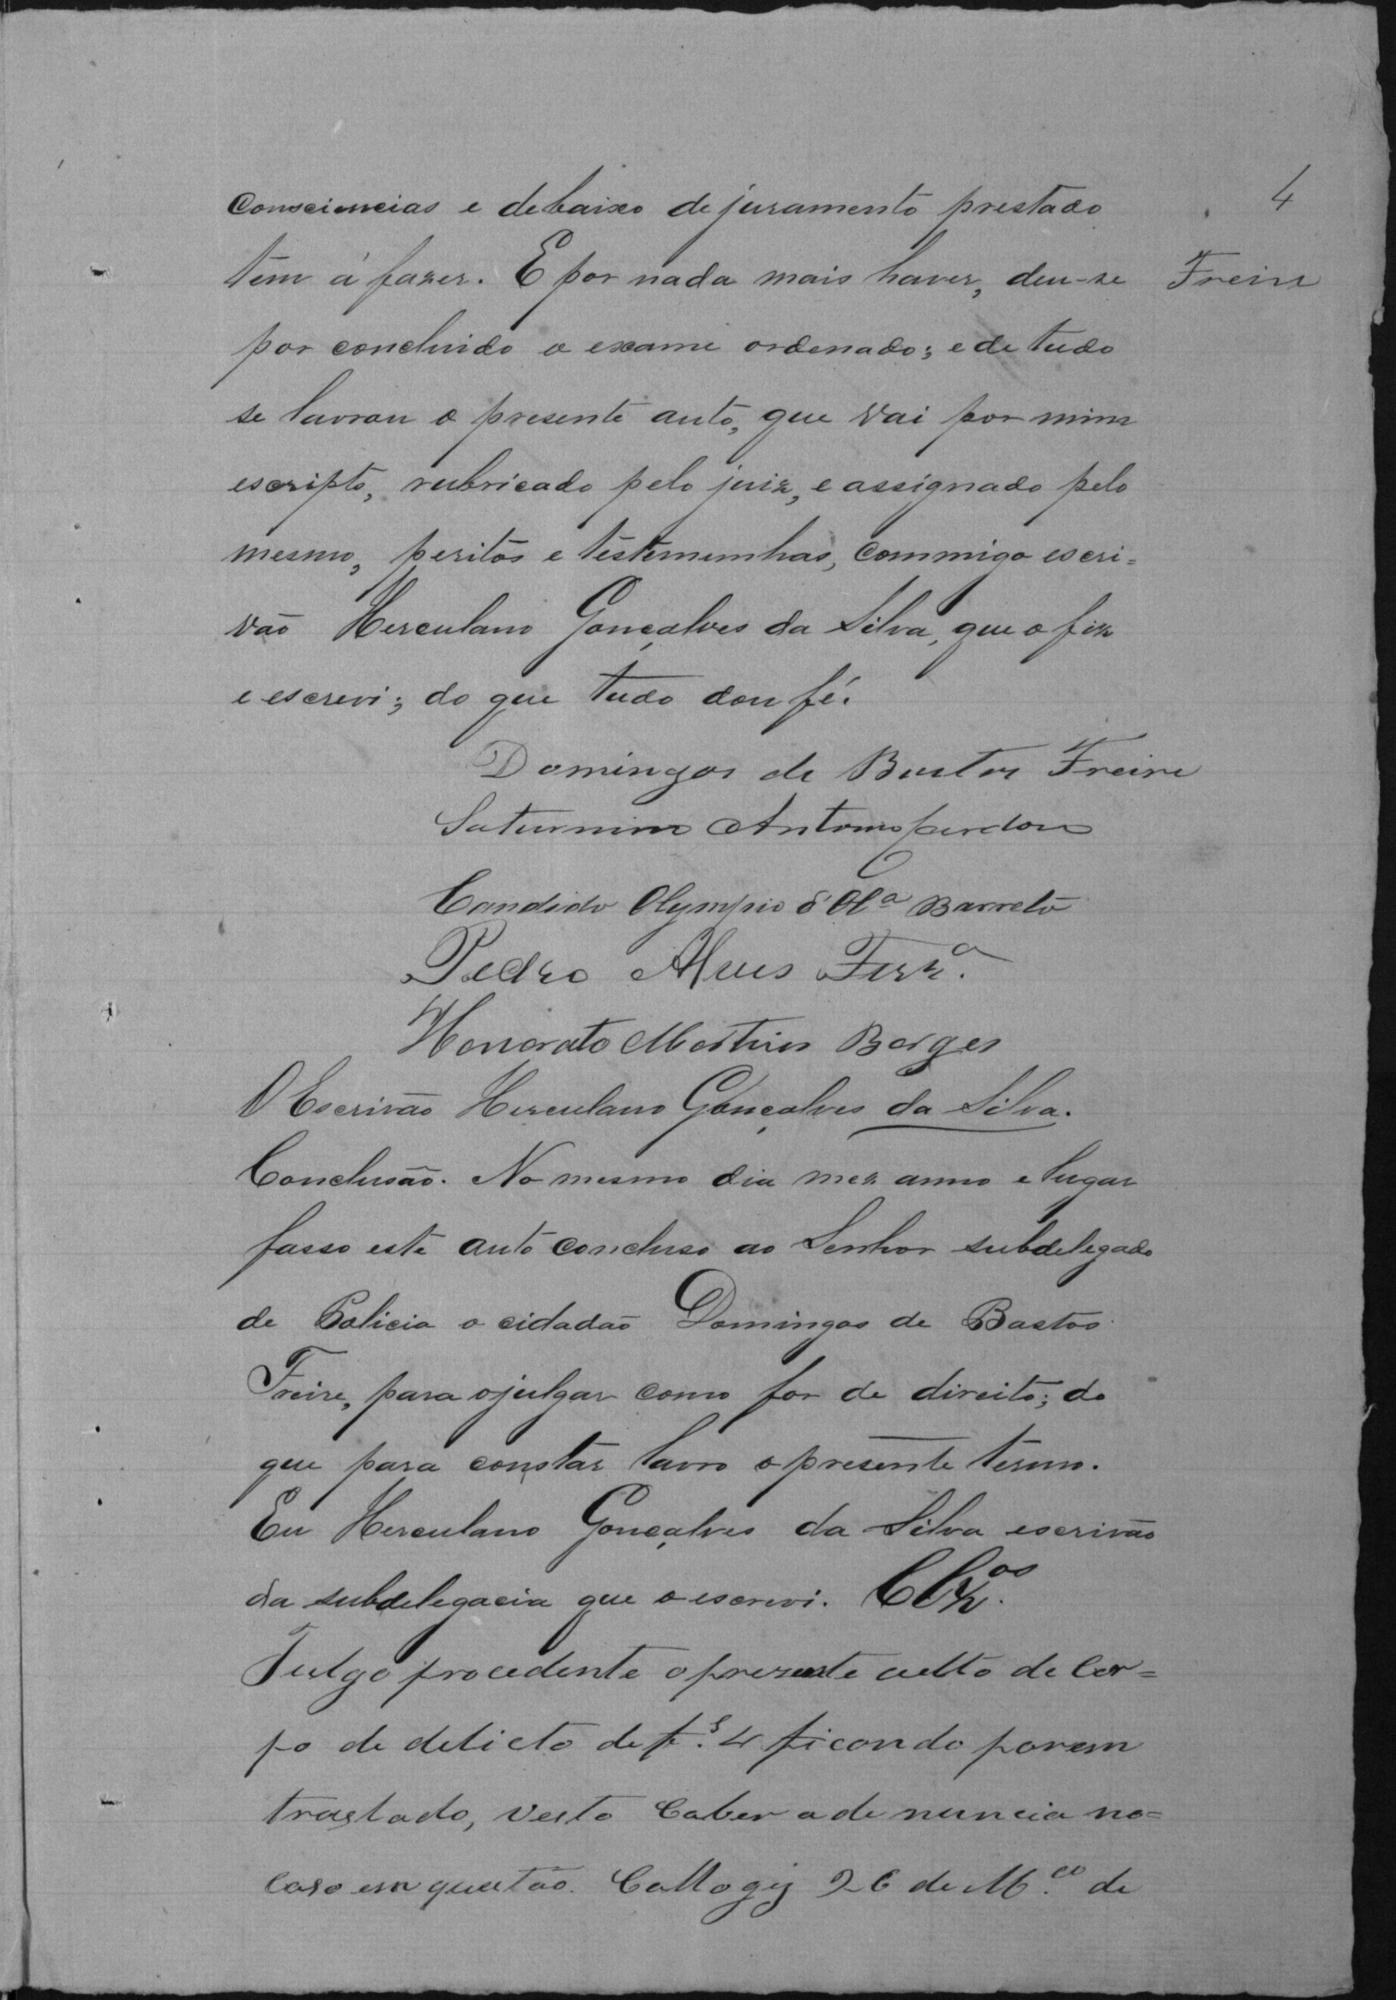 4
Freire
consciencias e debaixo de juramento prestado
têm á fazer. E por nada mais haver, deu-se
por concluido o exame ordenado; e de tudo
se lavrou o presente auto, que vai por mim
escripto, rubricado pelo juiz, e assignado pelo
mesmo, peritos e testemunhas, commigo escri=
vão Herculano Gonçalves da Silva, que o fiz
e escrevi; do que tudo dou fé.
Domingos de Bastos Freire
Saturnino Antonio
Candido Olympio d'Olª Barreto
Pedro Alves Ferrª.
Honorato Martins Borges
O Escrivão Herculano Gonçalves da Silva.
Conclusão. No mesmo dia mez anno e lugar
fasso este auto concluso ao Senhor subdelegado
de Policia o cidadão Domingos de Bastos
Freire, para o julgar como for de direito; do
que para constar lavro o presente termo.
Eu Herculano Gonçalves da Silva escrivão
da subdelegacia que o escrevi. Clzos.
Julgo procedente o prezente aulto de Cor=
po de delicto de fs. 4 ficando porem
traslado, visto Caber a denuncia no=
caso em questão. 26 de M.ço de